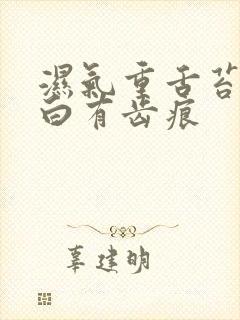 濕氣重舌苔
白有齿痕
辜建明